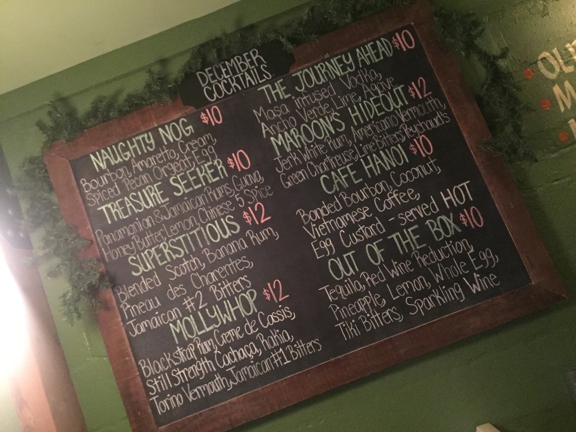 DECEMBER
COCKTAILS
NAUGHTY NOG $10
Bourbon, Amaretto, Cream,
Spiced Pecan Orgeat, Egg
TREASURE SEEKER $10
Panamanian & Jamaican Rums, Guava,
Honey Butter, Lemon, Chinese 5 Spice
SUPERSTITIOUS $12
Blended Scotch, Banana Rum,
Pineau des Charentes,
Jamaican #2 Bitters
MOLLYWHOP $12
Blackstrap Rum, Creme de Cassis,
Still Strength Cachaça, Kahlua,
Torino Vermouth, Jamaican #1 Bitters
THE JOURNEY AHEAD $10
Masa Infused Vodka,
Ancho Verde, Lime, Agave
MAROON'S HIDEOUT $12
Jerk White Rum, Americano Vermouth,
Green Chartreuse, Lime Bitters, Peychaud's
CAFE HANOI $10
Bonded Bourbon, Coconut,
Vietnamese Coffee,
Egg Custard - served HOT
OUT OF THE BOX $10
Tequila, Red Wine Reduction,
Pineapple, Lemon, Whole Egg,
Tiki Bitters, Sparkling Wine